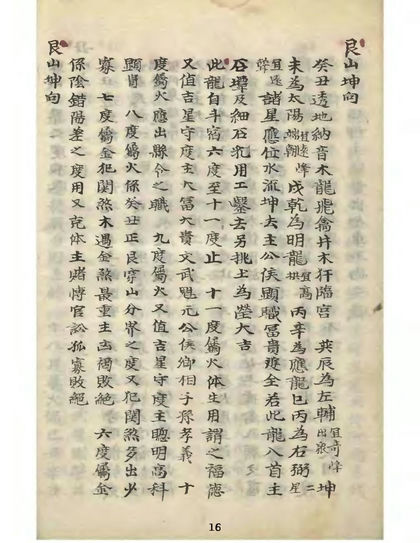 艮山坤向
癸丑透地納音木龍飛禽井木犴臨宮　巽辰為左輔宜奇峰出衆坤
未為太陽宜遠峰端朝戌乾為明龍宜高拱丙辛為應龍巳丙為右弼二星
宜遠聳諸星應位水流坤去主公侯顯職冨貴雙全若此龍入首主
石墰及細石乳用工鑿去另挑土為塋大吉
此龍自斗宿六度至十一度止　十一度屬火体生用謂之福德
又值吉星守度主大富大貴文武魁元公侯卿相子孫孝義　十
度屬火應出縣令之職　九度屬火又值吉星守度主聰明高科
顯胄　八度屬火係癸丑正艮穿山分界之度又犯関煞多出少
寡　七度屬金犯関煞木遇金煞最重主凶禍敗絕　六度屬金
係陰錯陽差之度用又克体主賭悖官訟孤寡敗絕
艮山坤向
16